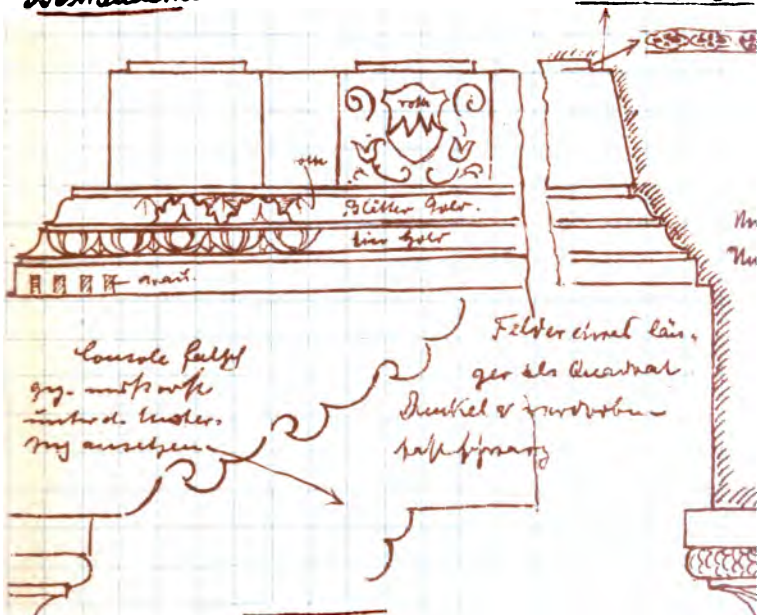 roth
roth
Blätter Gold.
Eier Gold
grau.
Console falsch
gez. muss erst
unter d. Unter-
zug ansetzen
Felder einmal län-
ger als Quadrat
Dunkel & verdorben
fast schwarz